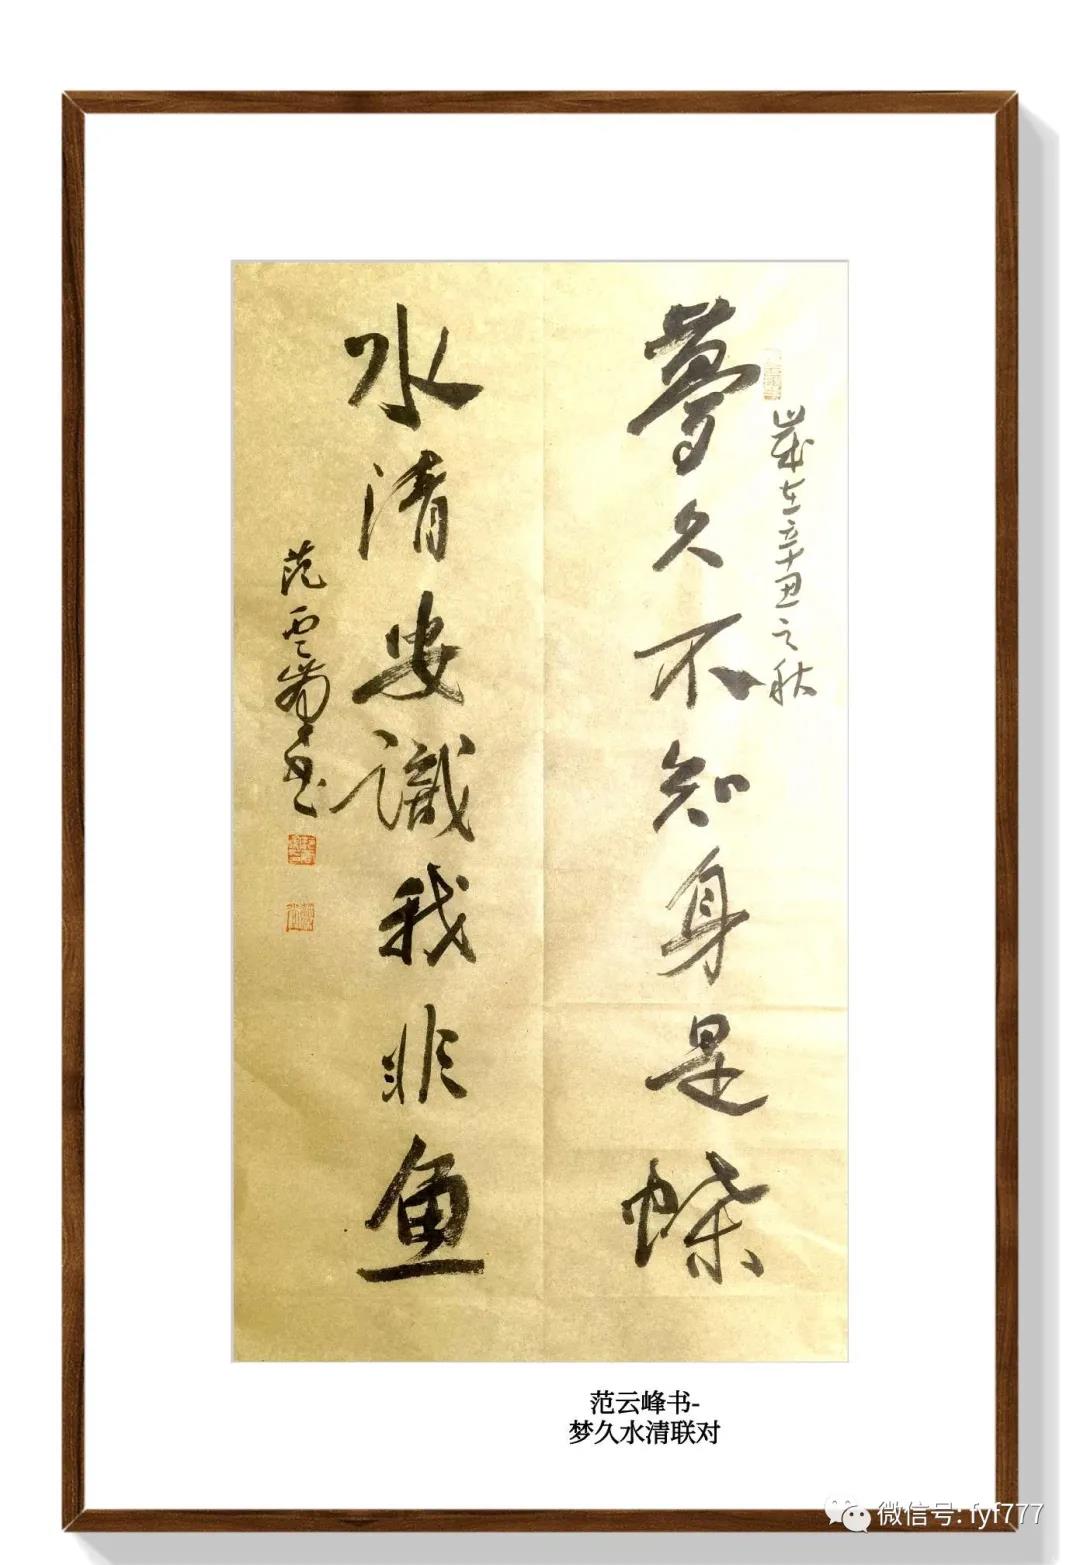 歲在辛丑之秋
夢久不知身是蝶
水清安識我非鱼
范雲峯書
范云峰书-
梦久水清联对
微信号: fyf777